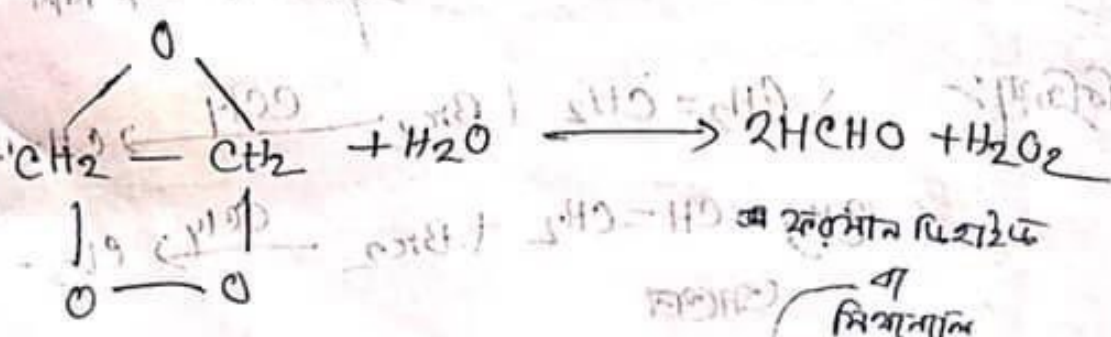 O
CH2 — CH2 + H2O ⟶ 2HCHO + H2O2
O — O
ফরমাল ডিহাইড
বা
মিথান্যাল